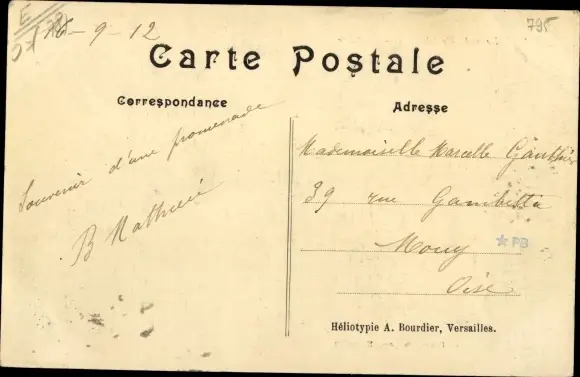 -9-12
795
Carte Postale
Correspondance
Adresse
Souvenir d'une promenade
B Mathieu
Mademoiselle Marcelle Gauthier
39 rue Gambetta
Mouy
Oise
* PB
Héliotypie A. Bourdier, Versailles.